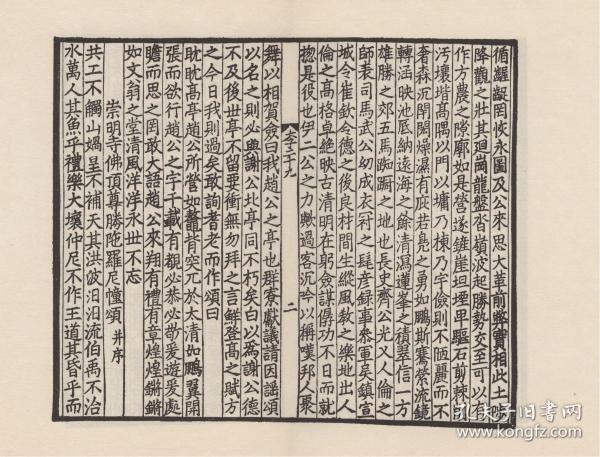 循齷齪罔恢永圖及公來思大革前弊實相此土陟
降觀之壯其廻崗龍盤沓嶺波起勝勢交至可以有
作方農之隙廓如是營遂鏟崖堙卑驅石剪棘削
汚壤堦高隅以門以墉乃棟乃宇儉則不陋麗而不
奢森沉閈閎燥濕有庇若鼇之勇如鵬斯騫縈流鏡
轉涵映池底納遠海之餘清瀉蓮峯之積翠信一方
雄勝之郊五馬踟躕之地也長史齊公光乂人倫之
師表司馬武公幼成衣冠之髦彦録事叅軍吳鎮宣
城令崔欽令德之後良材間生縱風敎之樂地出人
倫之髙格卓絶映古清明在躬僉謀僝功不日而就
揔是役也伊二公之力歟過客沉吟以稱嘆邦人聚
李二十九
二
舞以相賀僉曰我趙公之亭也群寮獻議請因謡頌
以名之則必與謝公北亭同不朽矣白以爲謝公德
不及後丗亭不留要衝無勿拜之言鮮登髙之賦方
之今日我則過矣敢詢耆老而作頌曰
眈眈髙亭趙公所營如鼇背突兀於太清如鵬翼開
張而欲行趙公之宇千載有覩必恭必敬爰遊爰處
瞻而思之罔敢大語趙公來翔有禮有章煌煌鏘鏘
如文翁之堂清風洋洋永丗不忘
崇明寺佛頂尊勝陁羅尼幢頌 并序
共工不觸山媧皇不補天其洪波汩汩流伯禹不治
水萬人其魚乎禮樂大壞仲尼不作王道其昏乎而
孔夫子旧书网
www.kongfz.com